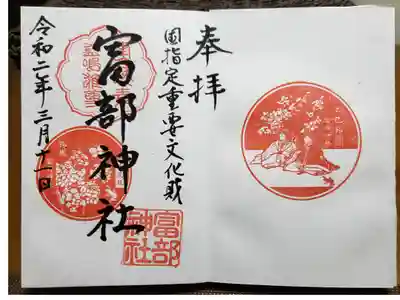 奉拝
国指定重要文化財
富部神社
令和二年三月十一日
富部
神社